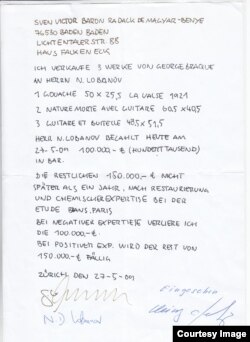 SVEN VICTOR BARON RADACK DE MAGYAR-BENYE
76530 BADEN BADEN
LICHTENTALERSTR. 88
HAUS FALKEN ECK
ICH VERKAUFE 3 WERKE VON GEORGE BRAQUE
AN HERRN N. LOBANOV
1 GOUACHE 50 x 25,5 LA VALSE 1921
2 NATURE MORTE AVEC GUITARE 60,5 x 40,5
3 GUITARE ET BUTEILLE 48,5 x 51,5
HERR N. LOBANOV BEZAHLT HEUTE AM
27-5-09 100.000.-€ (HUNDERTTAUSEND)
IN BAR.
DIE RESTLICHEN 150.000.-€ NICHT
SPÄTER ALS EIN JAHR, NACH RESTAURIERUNG
UND CHEMISCHER EXPERTISE BEI DER
ETUDE PARIS
BEI NEGATIVER EXPERTIESE VERLIERE ICH
DIE 100.000.-€.
BEI POSITIVER EXP. WIRD DER REST VON
150.000.-€ FÄLLIG
ZÜRICH DEN 27-5-09
Eingesehen
N.D. Lobanov
Courtesy Image